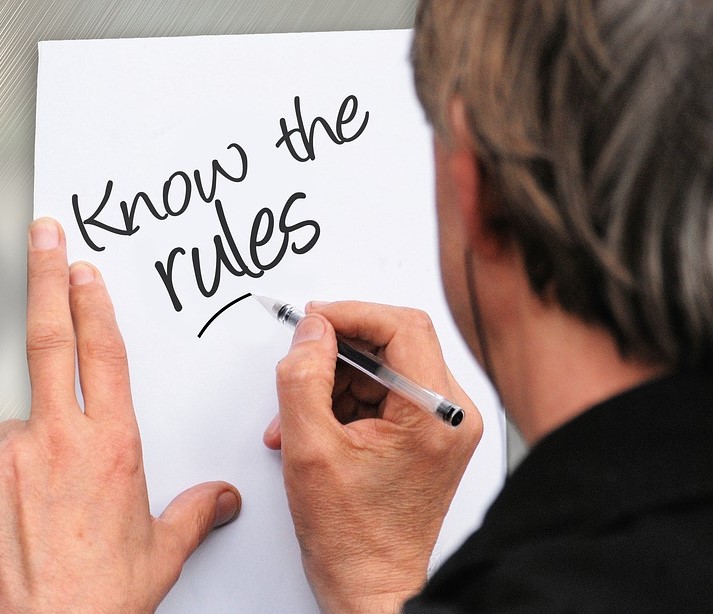 Know the
rules